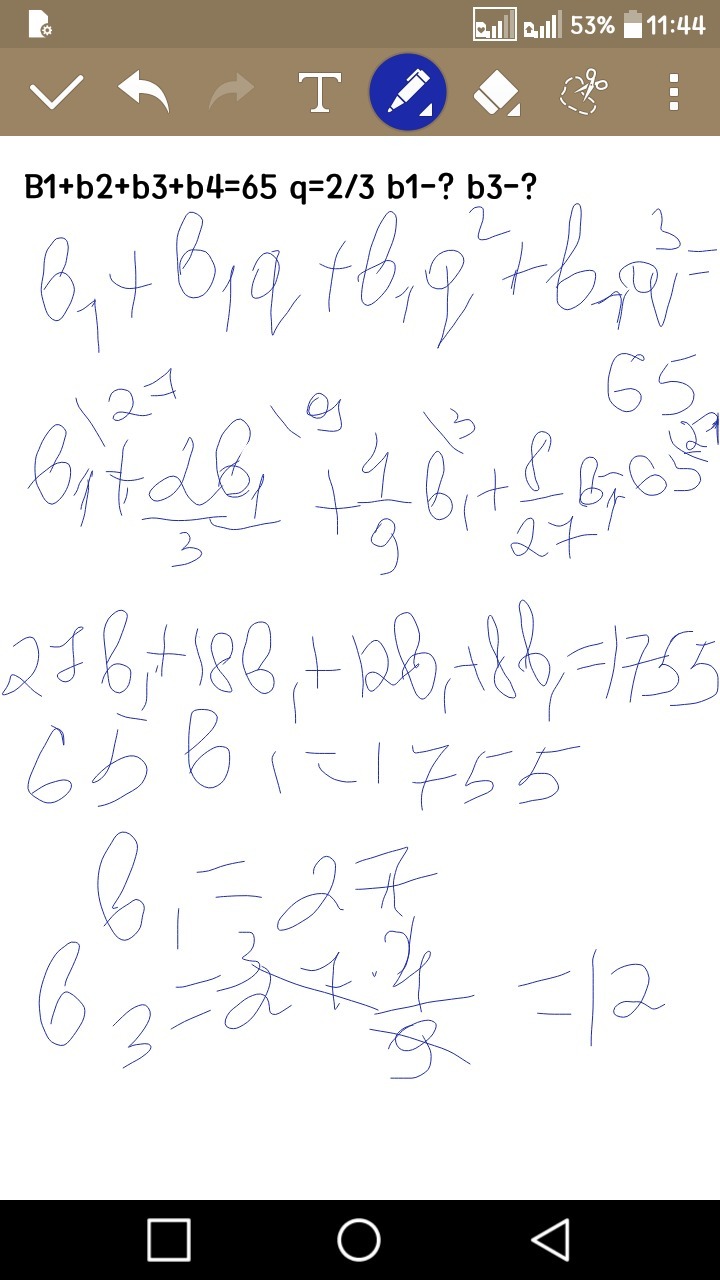 53% 11:44
T
B1+b2+b3+b4=65 q=2/3 b1-? b3-?
b₁+b₁q+b₁q²+b₁q³=
65
\27 \9 \3 \27
b₁+2b₁/3+4/9b₁+8/27b₁=65
27b₁+18b₁+12b₁+8b₁=1755
65b₁=1755
b₁=27
b₃=27·4/9=12
3